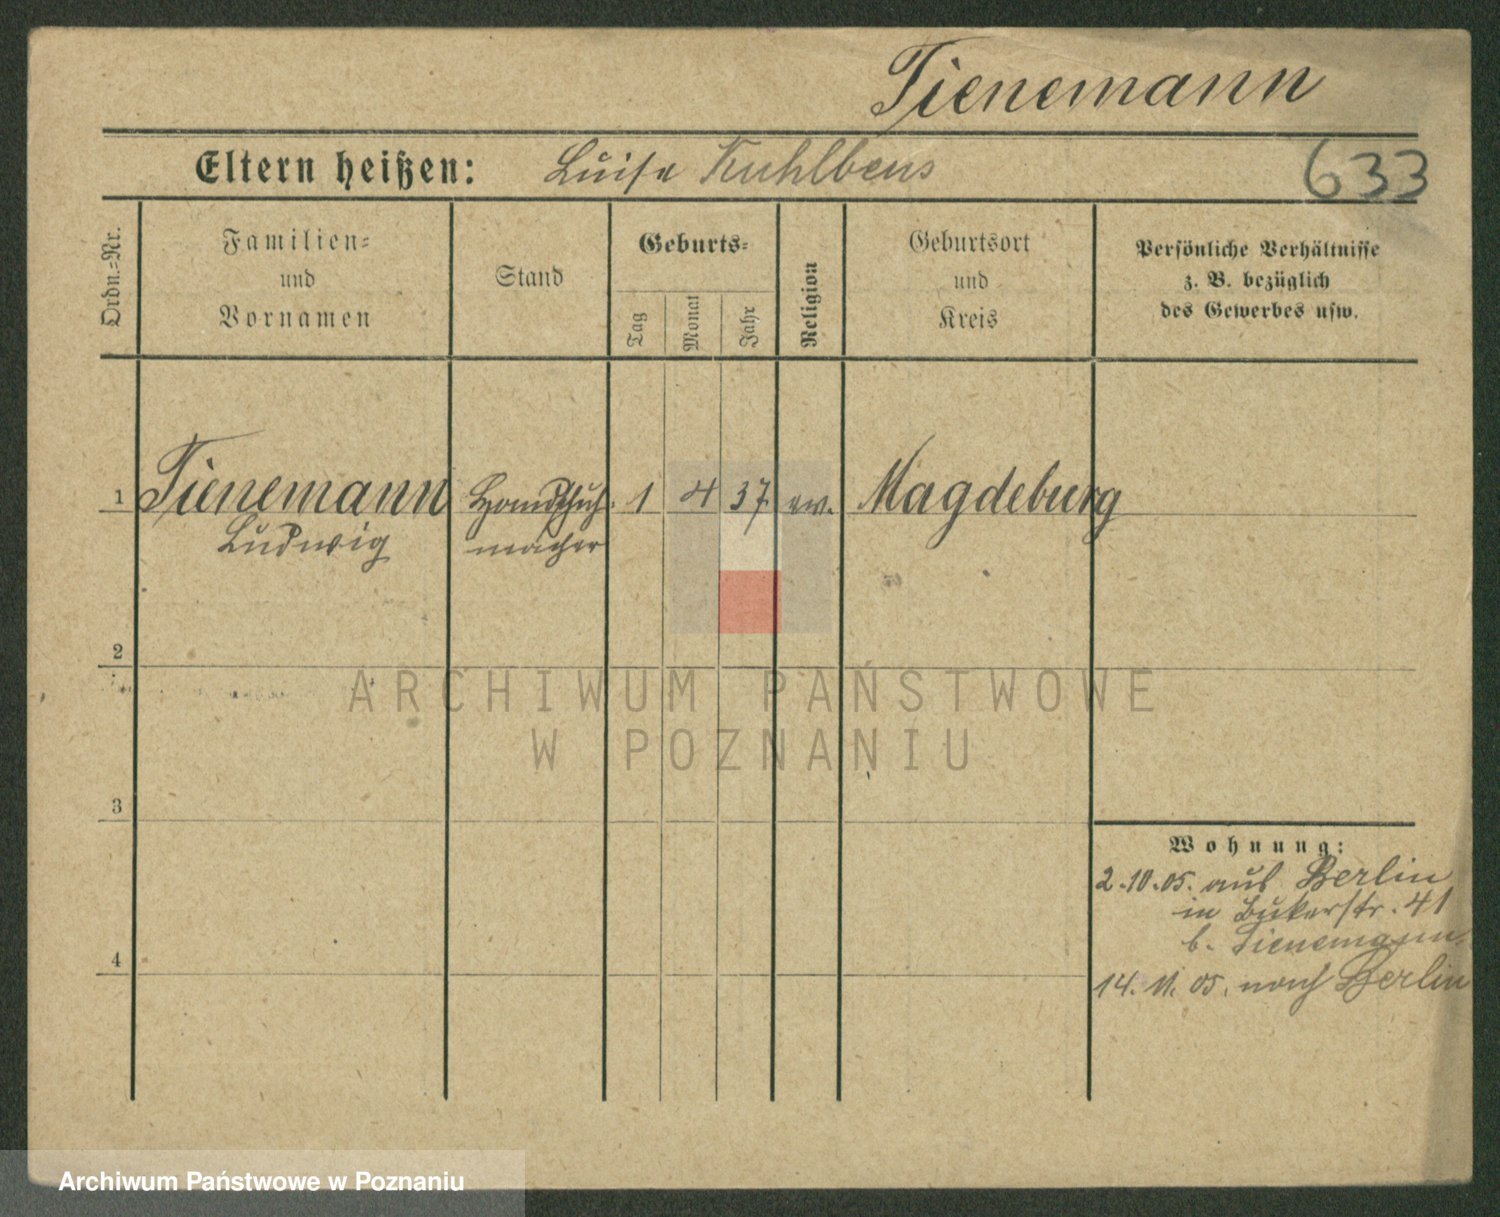 Tienemann
Eltern heißen: Luise Kuhlbens
633
Ordn.=Nr.
Familien=
und
Vornamen
Stand
Geburts=
Tag
Monat
Jahr
Religion
Geburtsort
und
Kreis
Persönliche Verhältnisse
z. B. bezüglich
des Gewerbes usw.
1 Tienemann Handschuh- 1 4 37 ev. Magdeburg
Ludwig macher
2
3
4
Wohnung:
2.10.05. aus Berlin
in Bukerstr. 41
b. Tienemann.
14. 11. 05. nach Berlin
ARCHIWUM PAŃSTWOWE
W POZNANIU
Archiwum Państwowe w Poznaniu